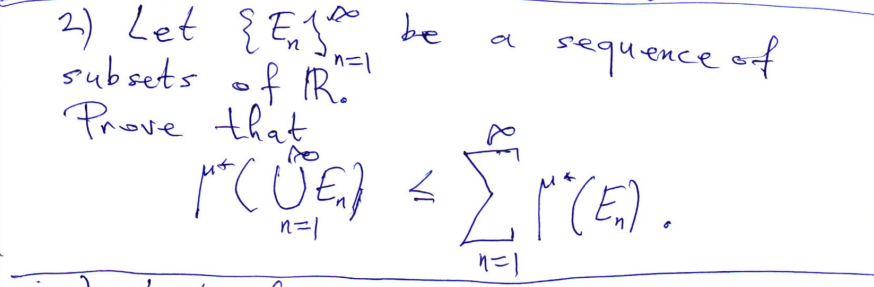 2) Let {Eₙ}ₙ₌₁^∞ be a sequence of
subsets of ℝ.
Prove that
μ*(⋃ₙ₌₁^∞ Eₙ) ≤ ∑ₙ₌₁^∞ μ*(Eₙ).